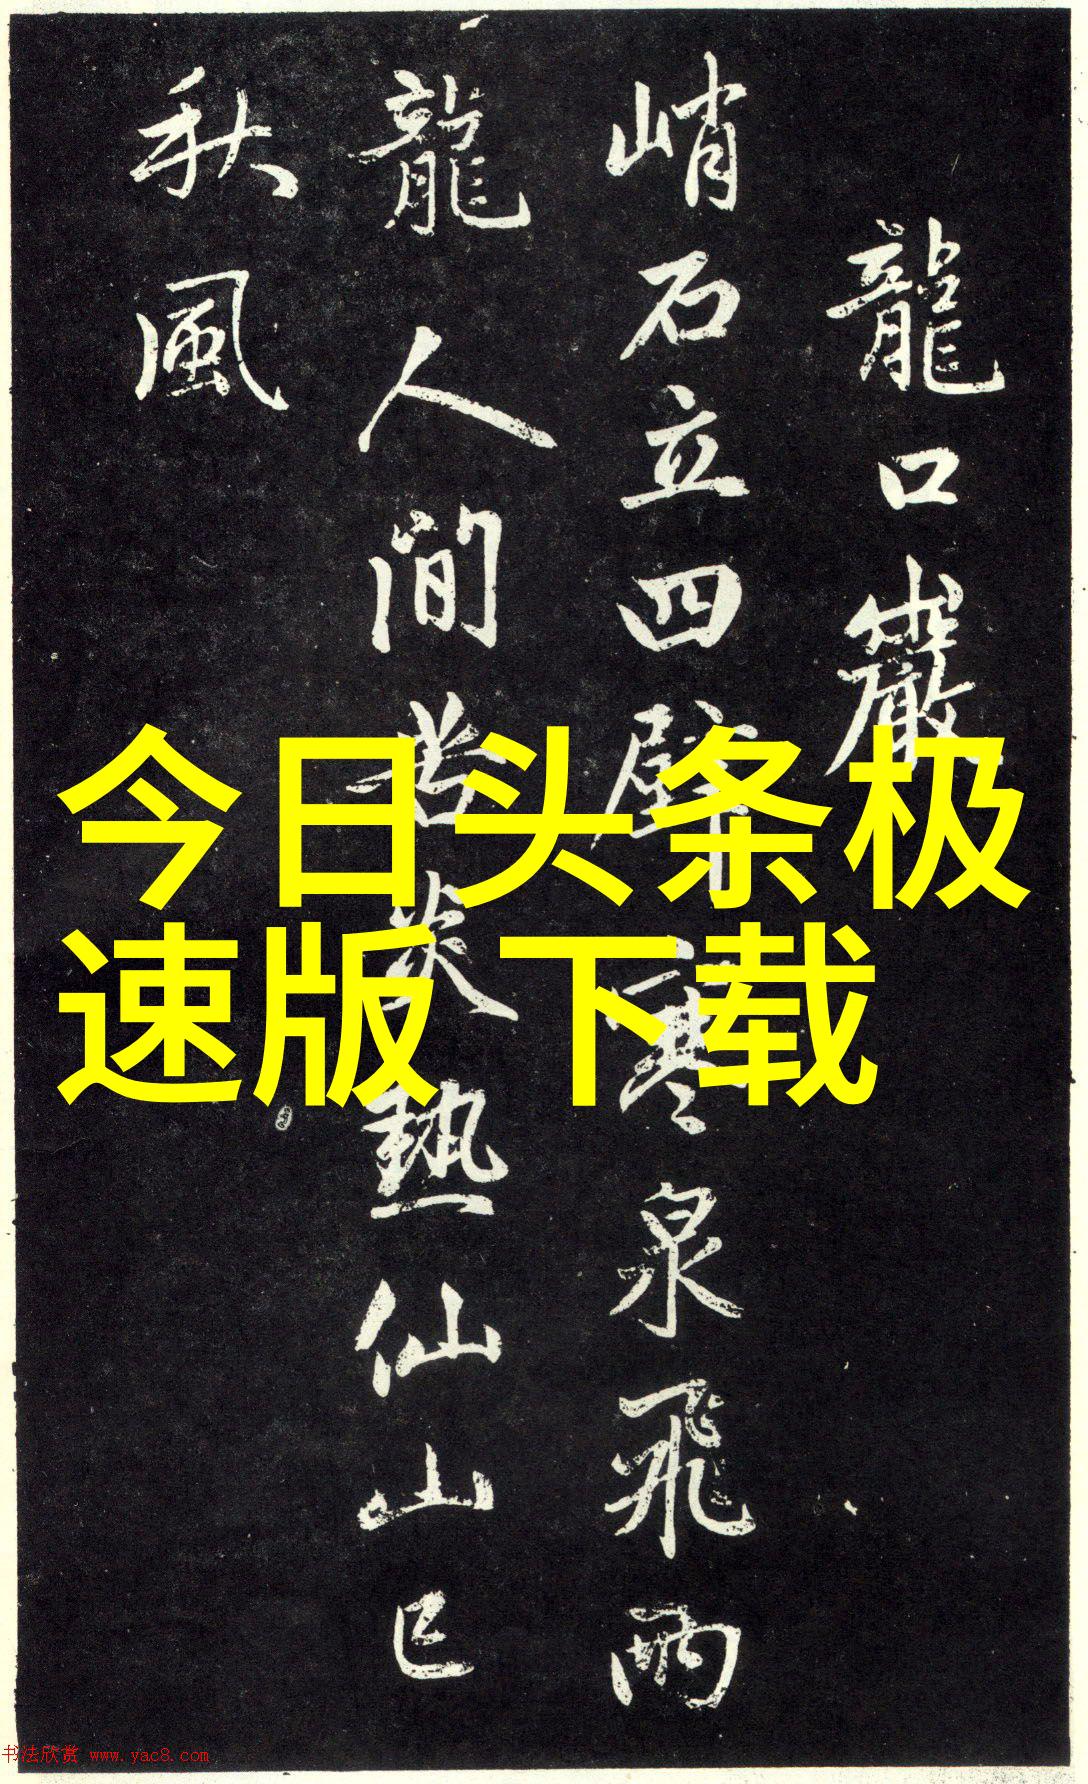 龍口巖
峭石立四壁寒泉飛兩
龍人間苦炎熱仙山已
秋風
今日头条极
速版 下载
书法欣赏 www.yac8.com